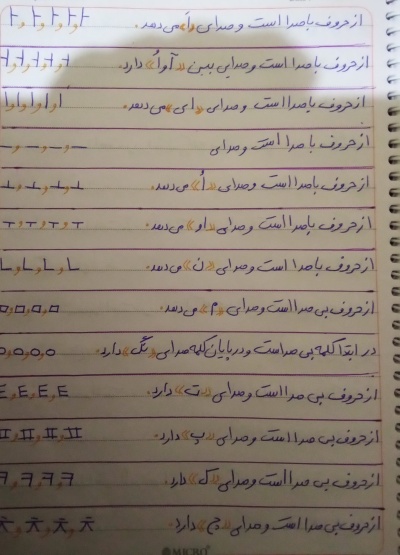 از حروف با صدا است و صدای «اَ» می دهد. ㅏ, ㅏ, ㅏ, ㅏ, ㅏ
از حروف با صدا است و صدایی بین «آ و اُ» دارد. ㅓ, ㅓ, ㅓ, ㅓ, ㅓ
از حروف با صدا است و صدای «ای» می دهد. ㅣ, ㅣ, ㅣ, ㅣ, ㅣ
از حروف با صدا است و صدای ㅡ, ㅡ, ㅡ, ㅡ
از حروف با صدا است و صدای «اُ» می دهد. ㅗ, ㅗ, ㅗ, ㅗ
از حروف با صدا است و صدای «او» می دهد. ㅜ, ㅜ, ㅜ, ㅜ
از حروف با صدا است و صدای «ن» می دهد. ㄴ, ㄴ, ㄴ, ㄴ
از حروف بی صدا است و صدای «م» می دهد. ㅁ, ㅁ, ㅁ, ㅁ
در ابتدا کلمه بی صداست و در پایان کلمه صدای «نگ» دارد. ㅇ, ㅇ, ㅇ, ㅇ
از حروف بی صدا است و صدای «ت» دارد. ㅌ, ㅌ, ㅌ, ㅌ
از حروف بی صدا است و صدای «پ» دارد. ㅍ, ㅍ, ㅍ, ㅍ
از حروف بی صدا است و صدای «ک» دارد. ㅋ, ㅋ, ㅋ, ㅋ
از حروف بی صدا است و صدای «چ» دارد. ㅊ, ㅊ, ㅊ, ㅊ
MICRO